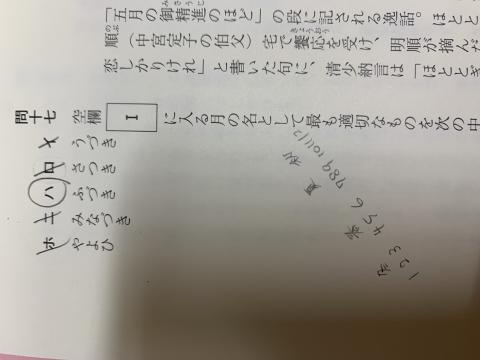 みさうじ
「五月の御精進のほど」の段に記される逸話。ほとと
のぶ きょうおう
順（中宮定子の伯父）宅で饗応を受け、明順が摘んだ
恋しかりけれ」と書いた句に、清少納言は「ほととぎ
問十七 空欄 I に入る月の名として最も適切なものを次の中
イ うづき
ロ さつき
ハ ふづき
ニ みなづき
ホ やよひ
春 夏 秋
1 2 3 4 5 6 7 8 9 10 11 12